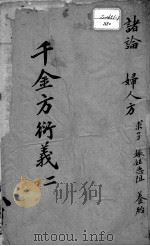 諸論
婦人方
求子 妊娠惡阻 養胎
千金方衍義 二